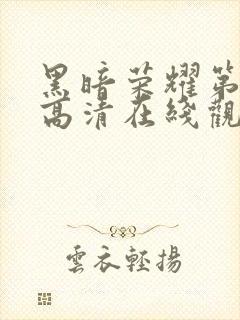 黑暗荣耀第
高清在綫觀
雲衣輕揚